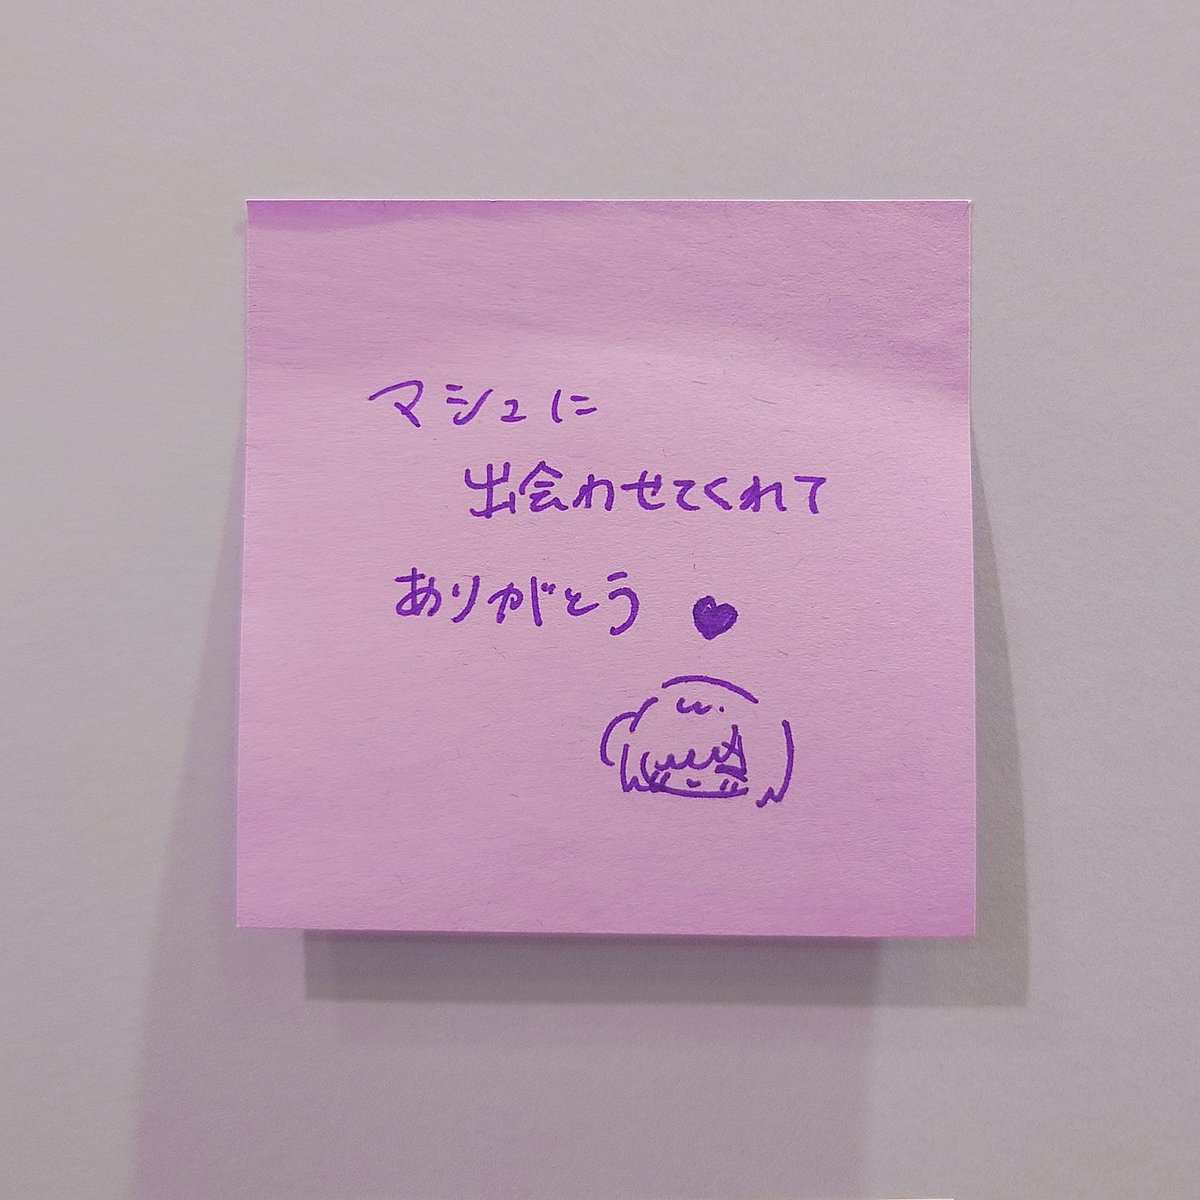 マシュに
出会わせてくれて
ありがとう♥